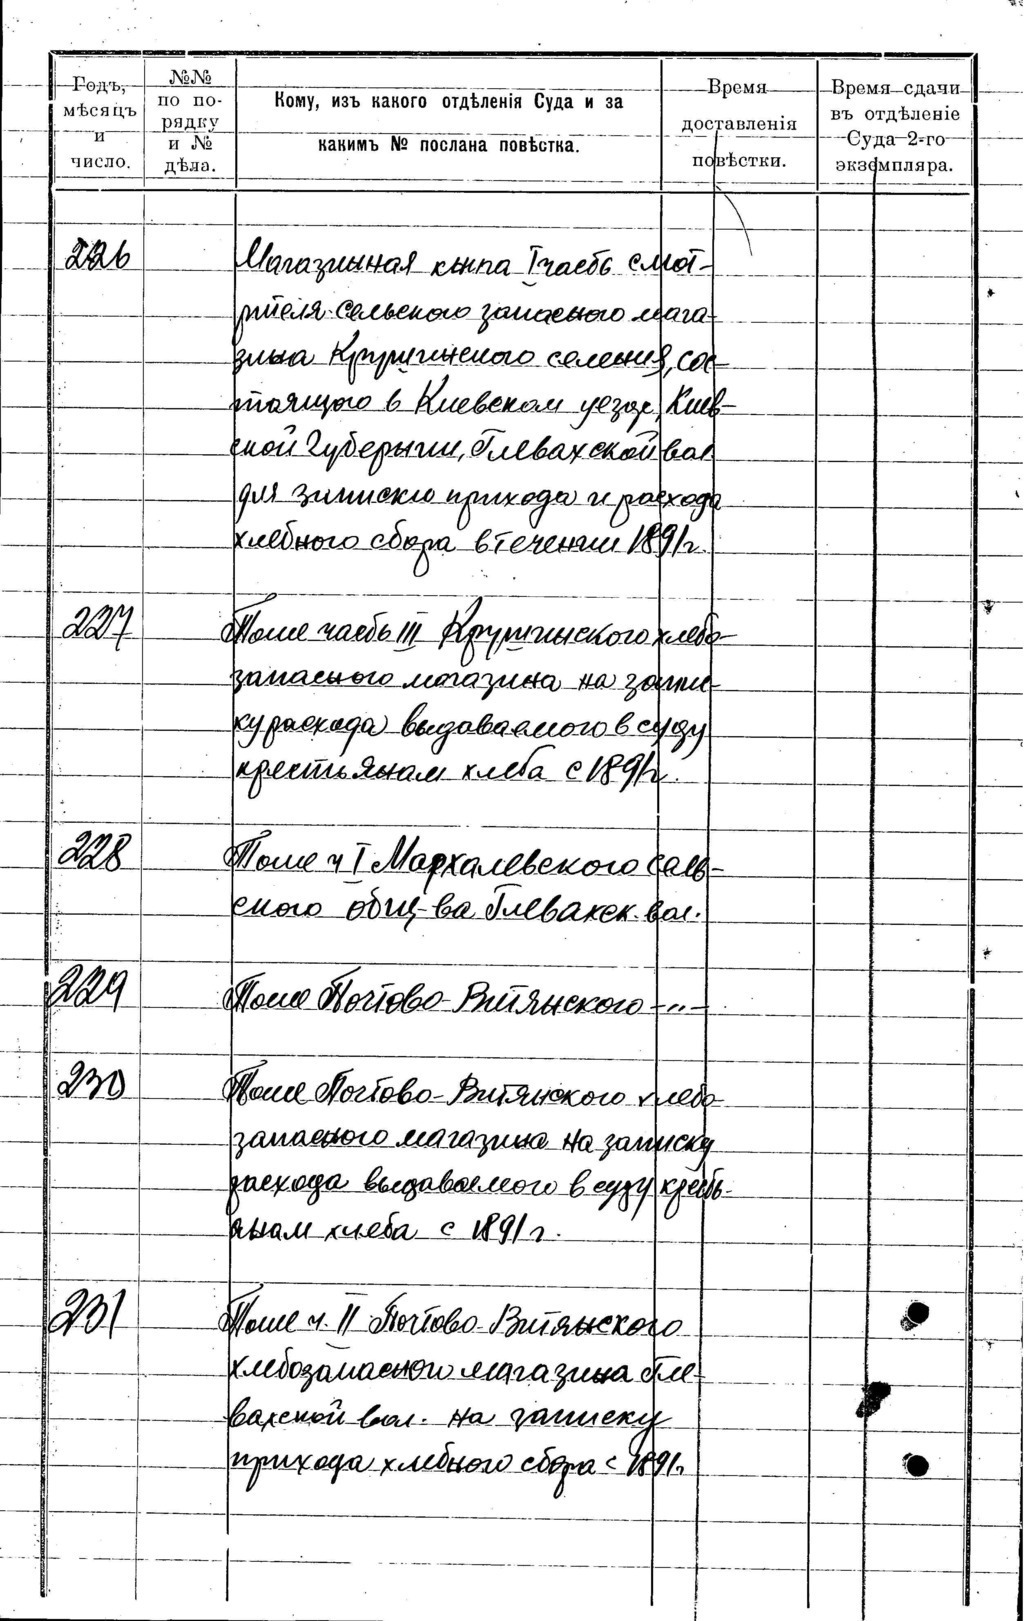 Годъ, мѣсяцъ и число.
№№ по порядку и № дѣла.
Кому, изъ какого отдѣленія Суда и за
какимъ № послана повѣстка.
Время доставленія повѣстки.
Время сдачи въ отдѣленіе Суда 2-го экземпляра.
226 Магазинная книга I часть смот-
рителя сельского запасного мага-
зина Кружгинского селения, сос-
тоящего в Киевском уезде, Киев-
ской Губернии, Глевахской вол
для записки прихода и расхода
хлебного сбора в течении 1891 г.
227 Тоже часть III Кружгинского хлебо-
запасного магазина на запис-
ку расхода выдаваемого в суду
крестьянам хлеба с 1891 г.
228 Тоже ч I Мархалевского сель-
ского общ-ва Глевахск. вол.
229 Тоже Почтово-Витянского -"-
230 Тоже Почтово-Витянского хлебо-
запасного магазина на записку
расхода выдаваемого в суду кресть-
янам хлеба с 1891 г.
231 Тоже ч. II Почтово-Витянского
хлебозапасного магазина Гле-
вахской вол. на записку
прихода хлебного сбора с 1891 г.